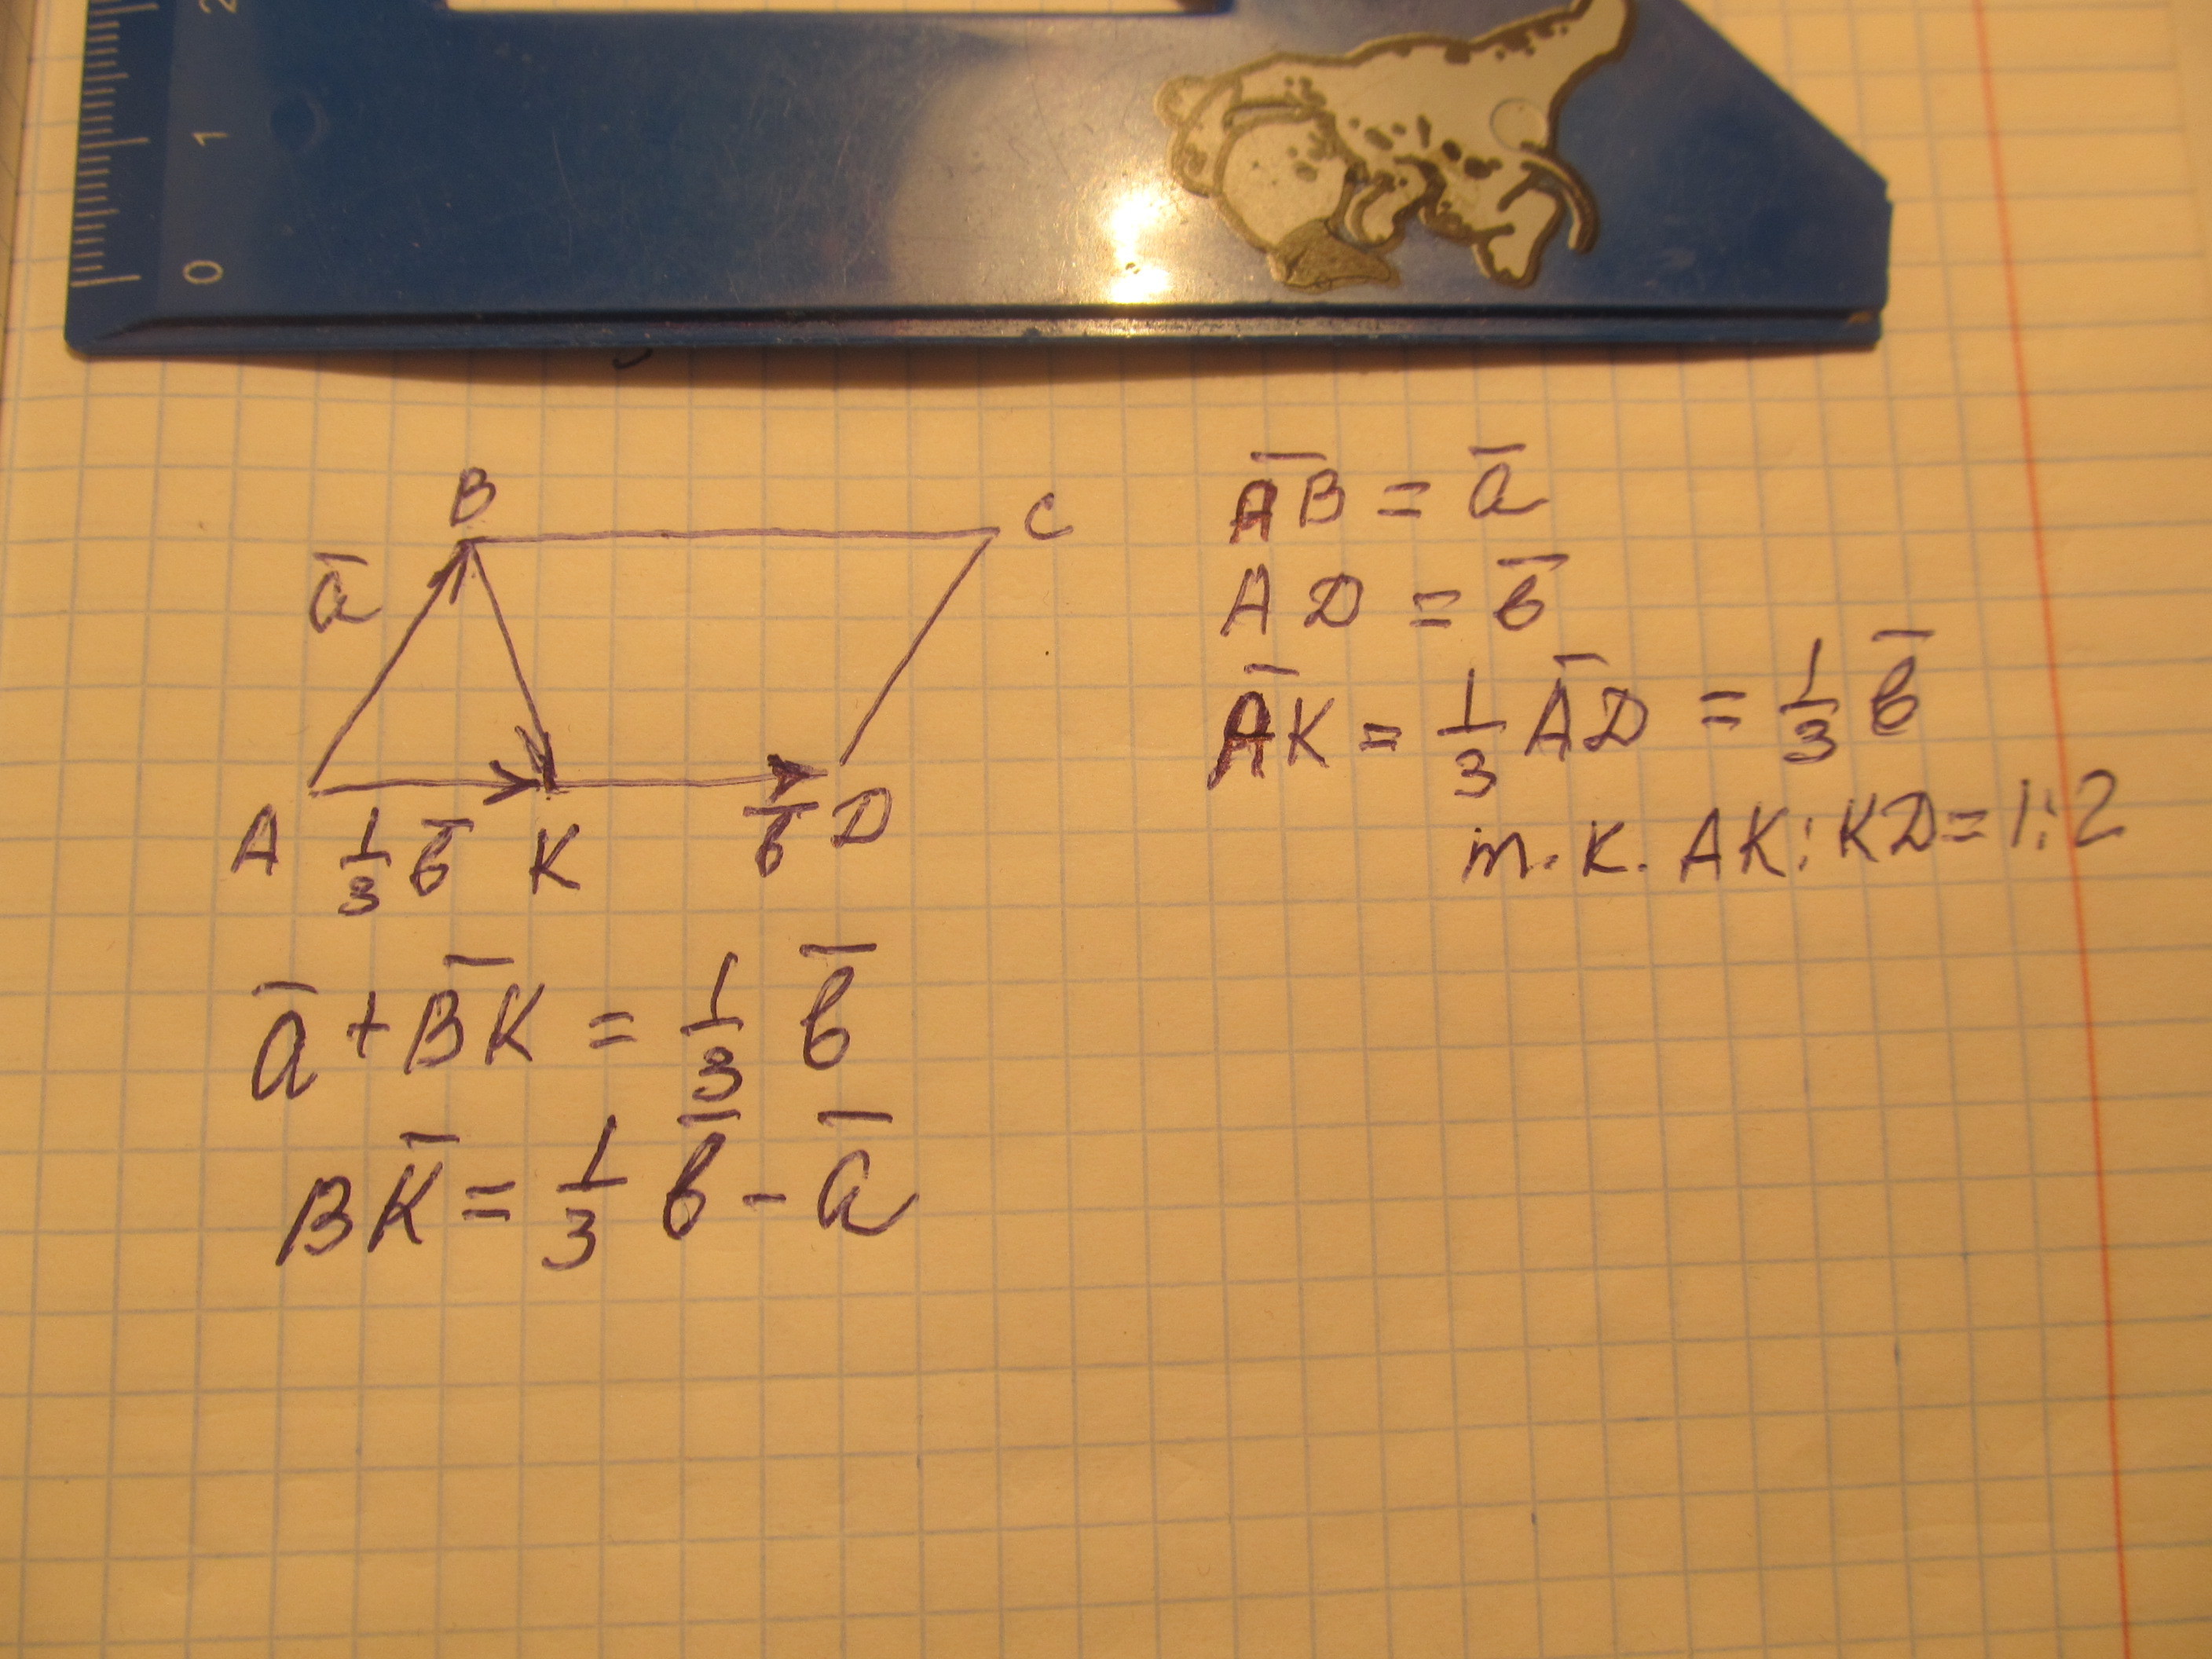 2
1
0
B
C
a̅
A
1/3 в̅
K
в̅
D
A̅B̅ = a̅
AD = в̅
A̅K = 1/3 A̅D = 1/3 в̅
т.к. AK:KD=1:2
a̅ + B̅K̅ = 1/3 в̅
BK̅ = 1/3 в̅ - a̅